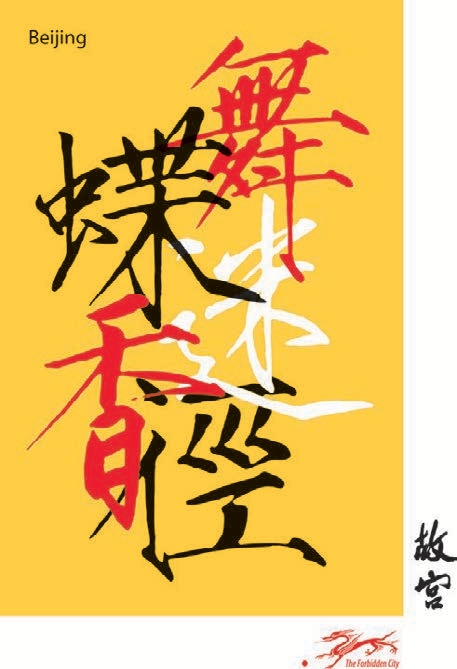 Beijing
舞
蝶
迷
香
徑
故宫
The Forbidden City